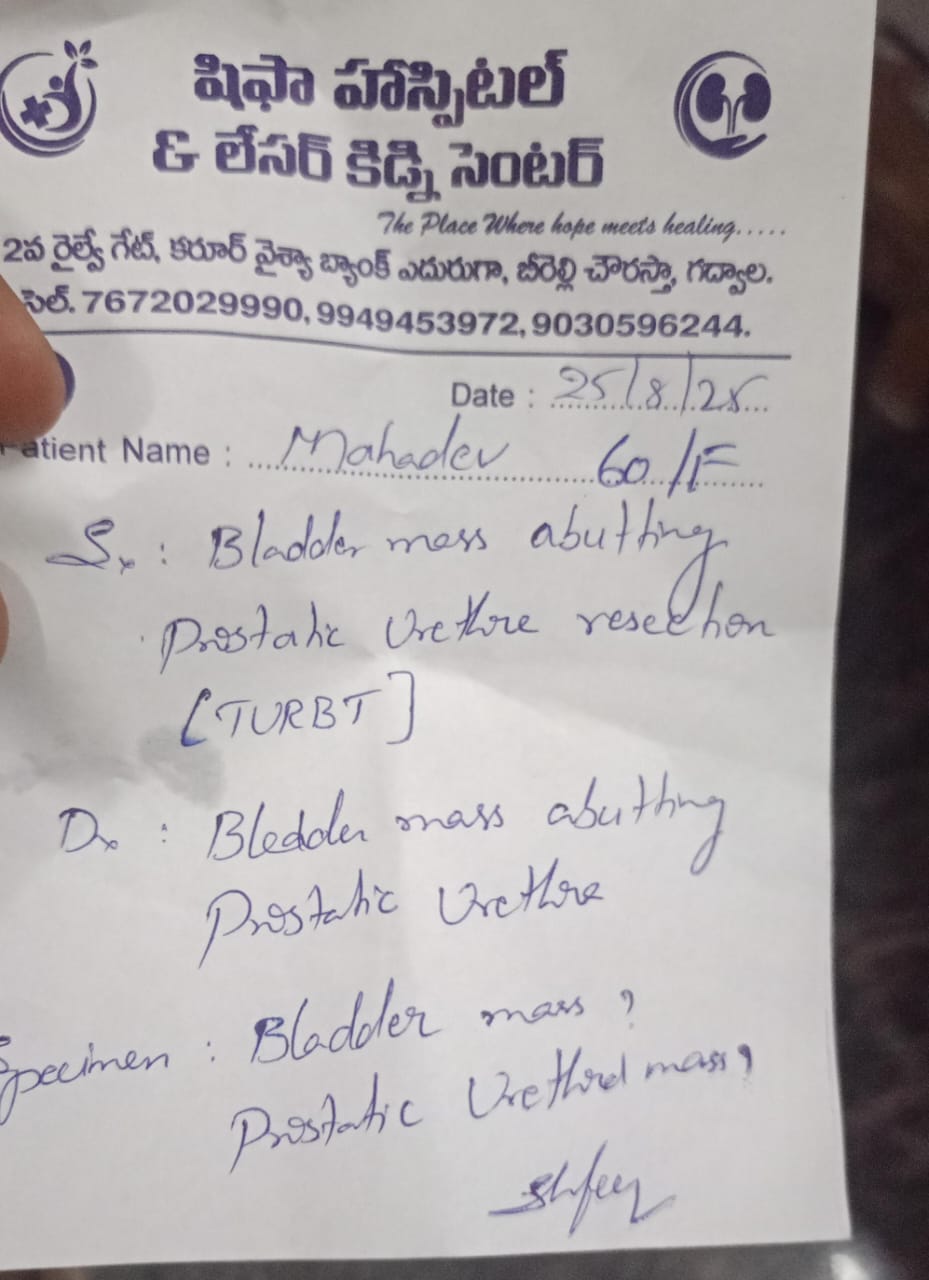 షిఫా హాస్పిటల్
& లేసర్ కిడ్ని సెంటర్
The Place Where hope meets healing.....
2వ రైల్వే గేట్, కరూర్ వైశ్యా బ్యాంక్ ఎదురుగా, బీరెల్లి చౌరస్తా, గద్వాల.
సెల్. 7672029990, 9949453972, 9030596244.
Date : 25/8/25
Patient Name : Mahadev 60/F
Sx : Bladder mass abutting
Prostatic Urethre resection
[TURBT]
Dx : Bledder mass abutting
Prostatic Urethre
Specimen : Bladder mass ?
Prostatic Urethrel mass ?